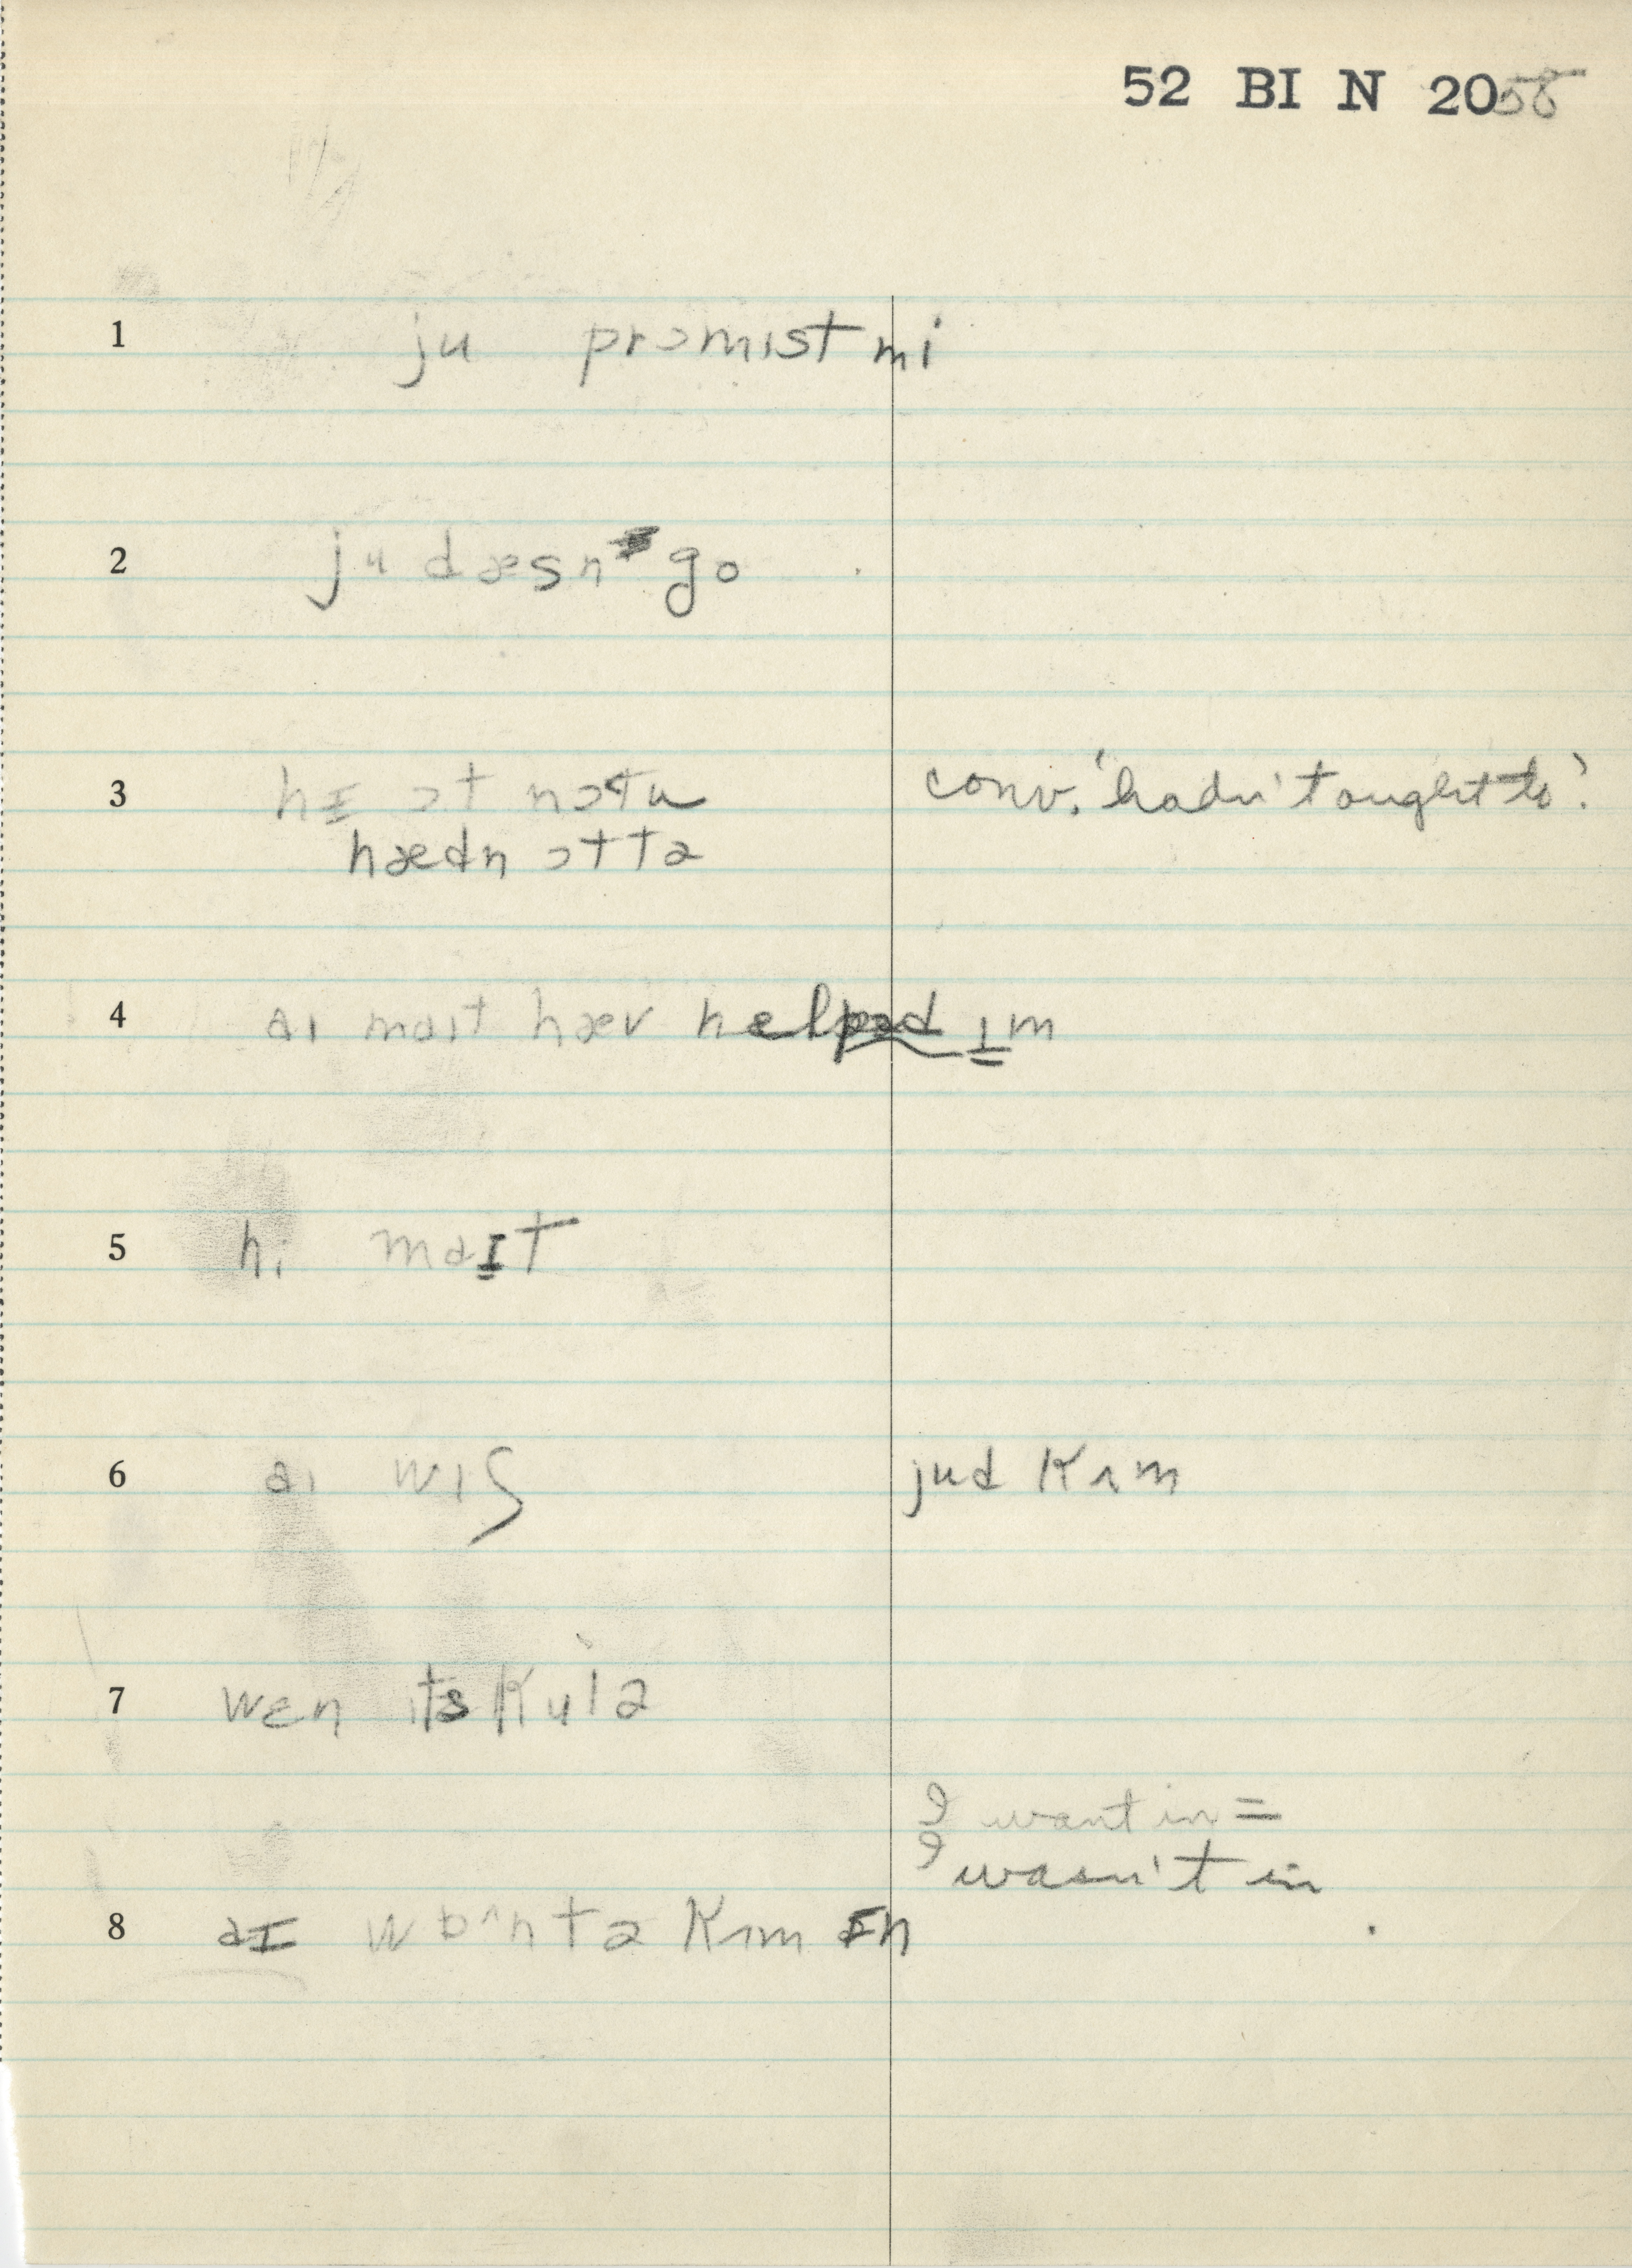 52 BI N 2058
1 ju prɔmɪst mi
2 ju dæsn go
3 hɪ ɔt nɔt tu conv. 'hadn't ought to'.
hædn ɔttə
4 aɪ maɪt hæv helped ɪm
5 hi maɪt
6 aɪ wɪʃ jud kʌm
7 wɛn ɪts kulə
I want in =
I wasn't in
8 aɪ wɒ^ntə kʌm ɪn